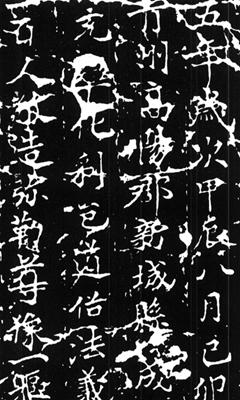 五年歲次甲辰八月己卯
青州高陽郡新城縣成
充化利邑道俗法義
百人敬造弥勒尊像一軀